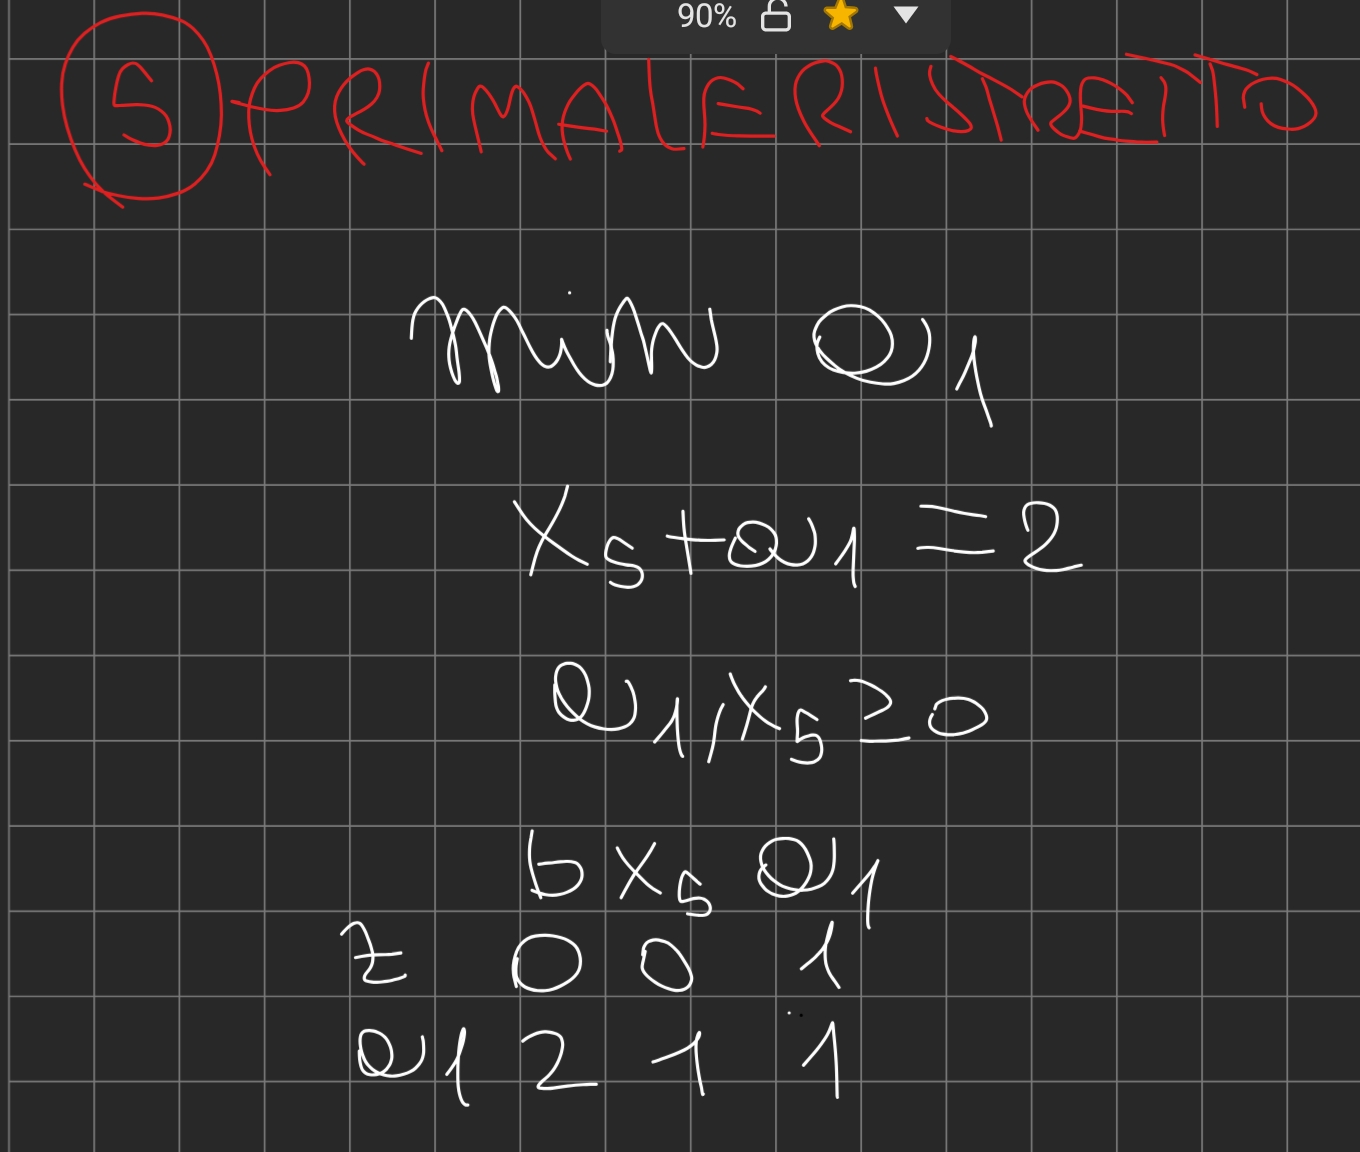 90%
5 PRIMALE RISTRETTO
min a1
x5+a1=2
a1,x5≥0
b x5 a1
z 0 0 1
a1 2 1 1